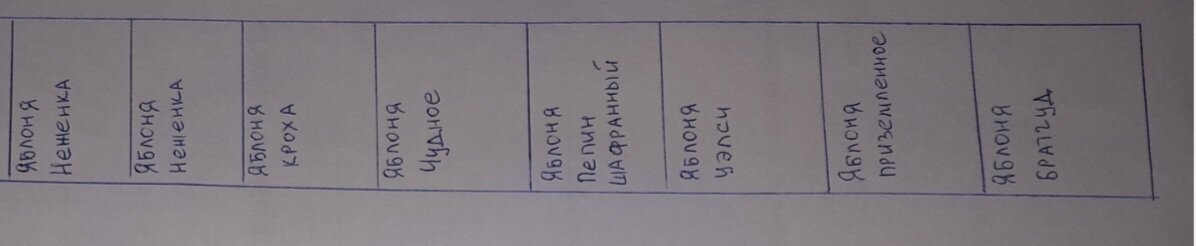 Яблоня
Неженка
Яблоня
Неженка
Яблоня
Кроха
Яблоня
Чудное
Яблоня
Пепин
шафранный
Яблоня
Уэлси
Яблоня
приземленное
Яблоня
Братчуд